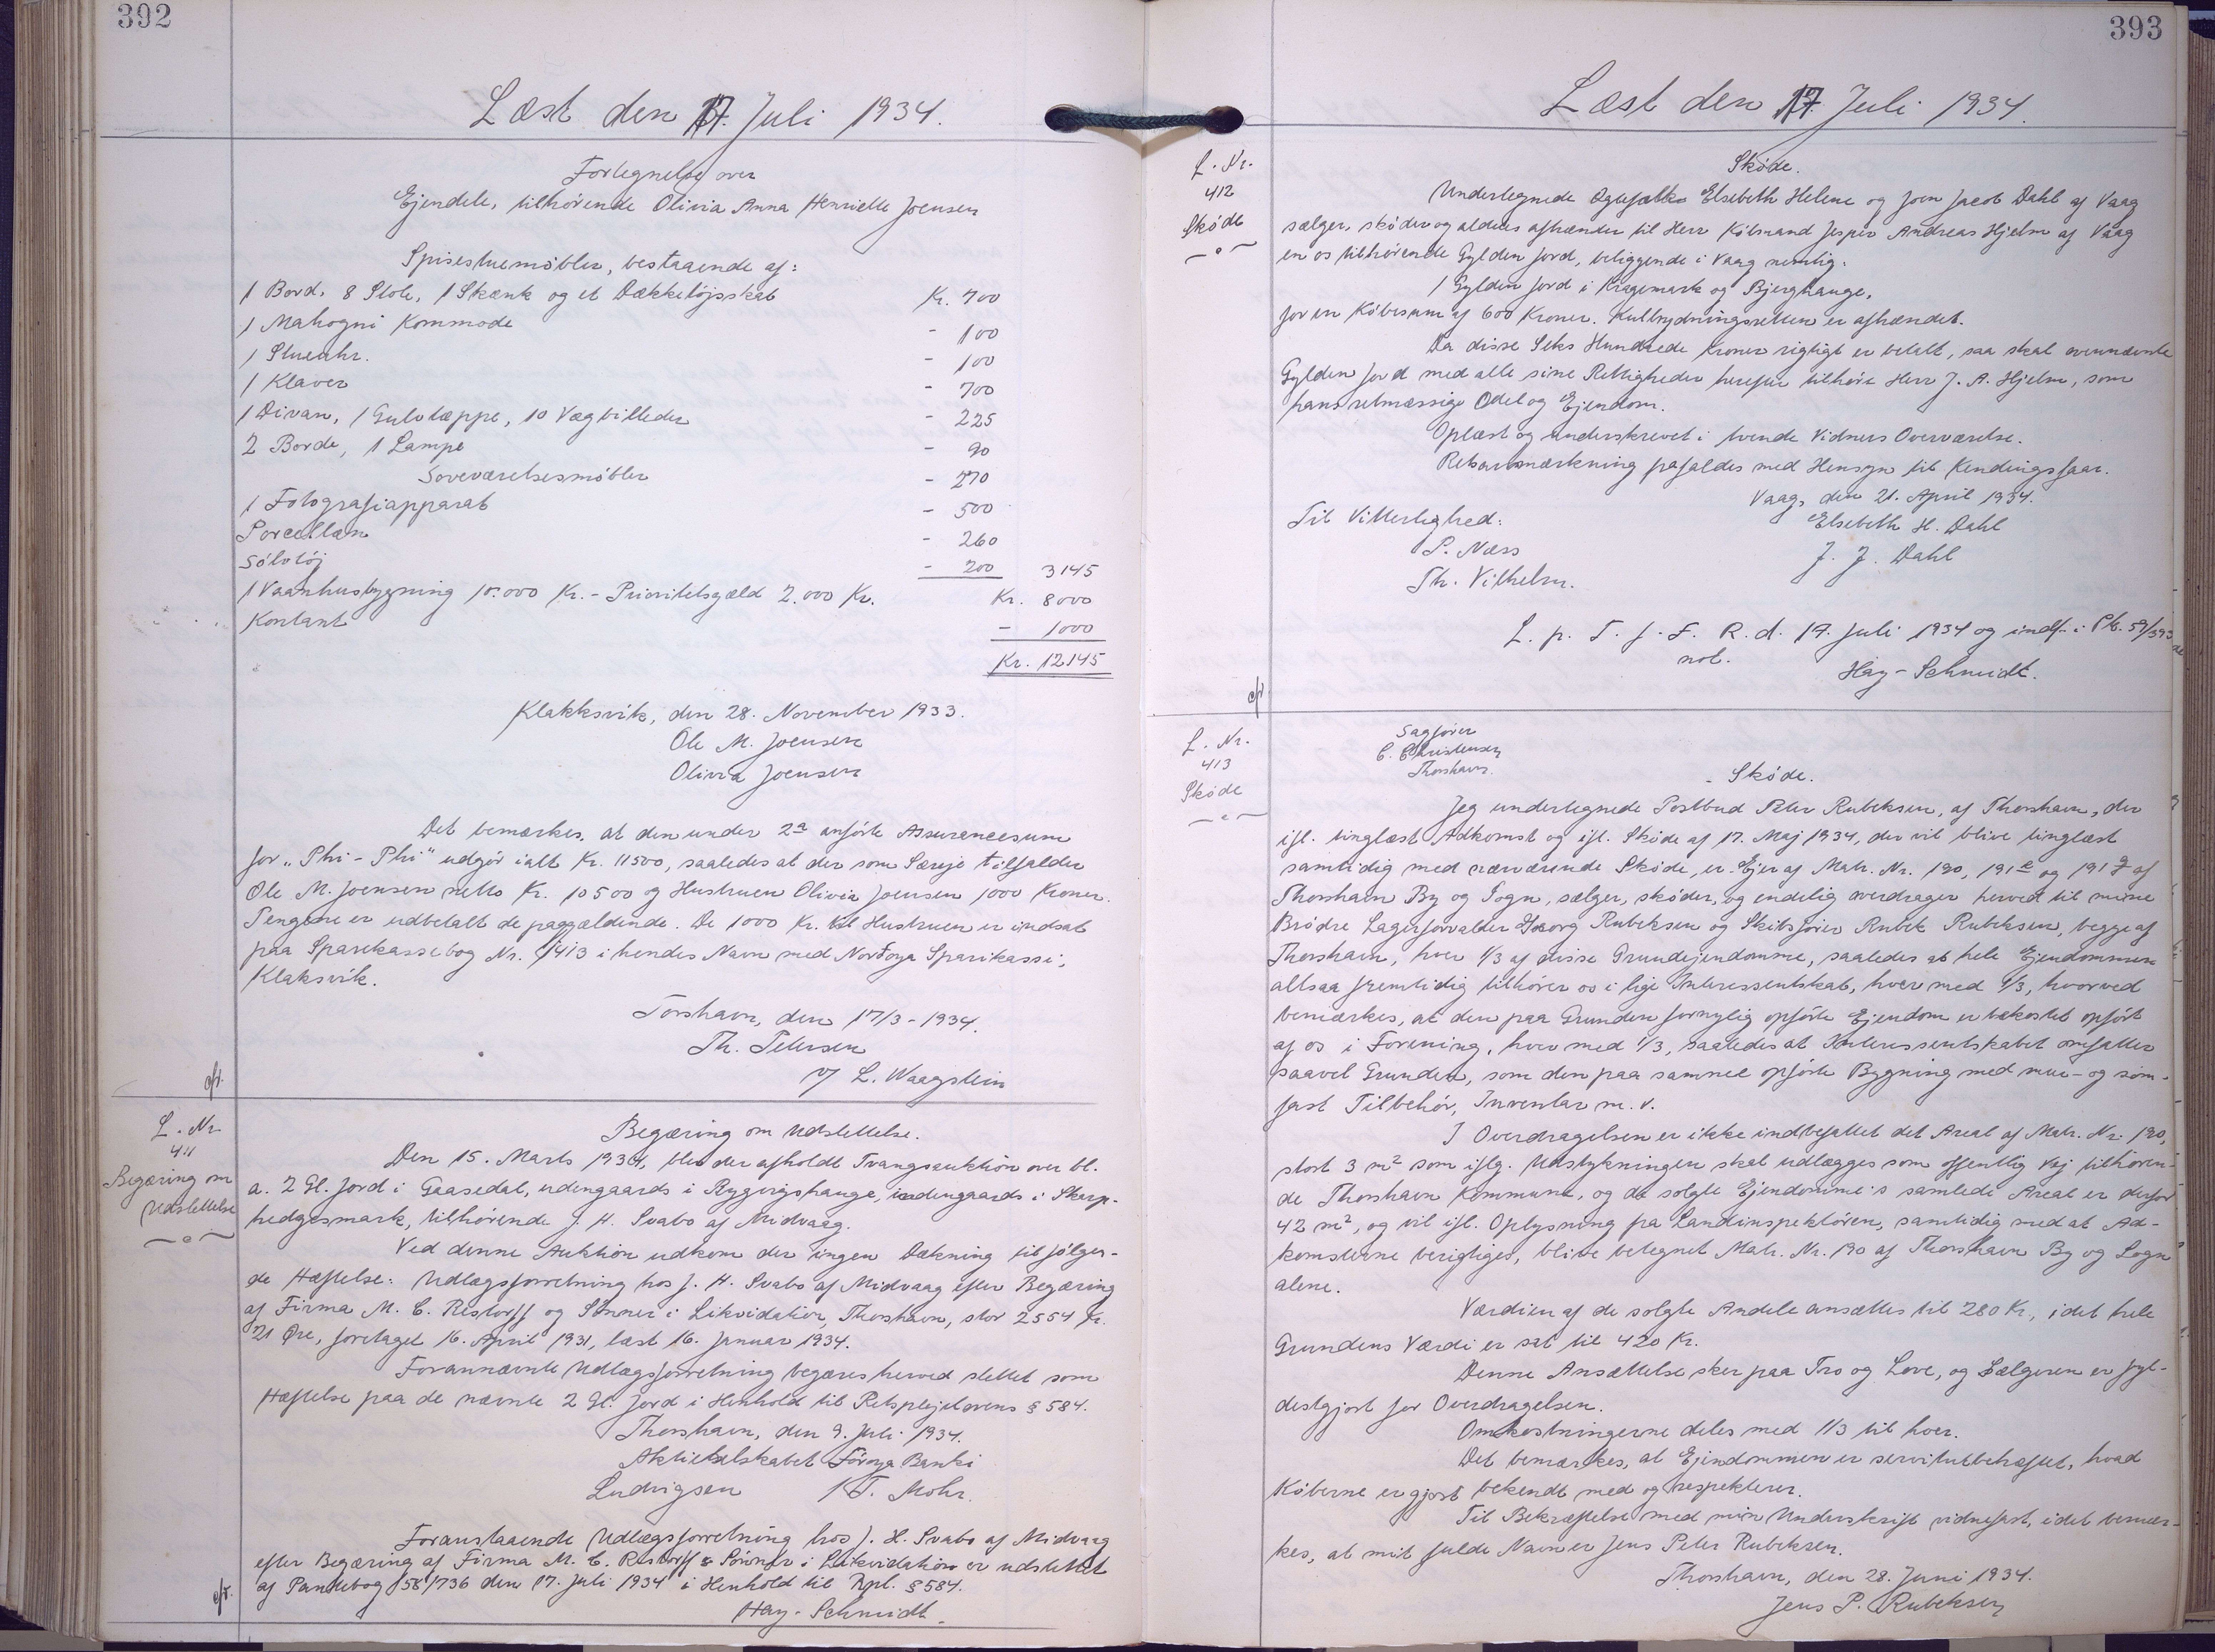 392
Læst den 17. Juli 1934.
Fortegnelse over
Ejendele, tilhørende Olivia Anna Henriette Joensen
Spisestuemøbler, bestaaende af:
1 Bord, 8 Stole, 1 Skænk og et Dækketøjsskab Kr. 700
1 Mahogni Kommode - 100
1 Stueuhr. - 100
1 Klaver - 700
1 Divan, 1 Gulvtæppe, 10 Vægbilleder - 225
2 Borde, 1 Lampe - 90
Soveværelsesmøbler - 270
1 Fotografiapparat - 500
Porcellæn - 260
Sølvtøj - 200 3145
1 Vaanhusbygning 10.000 Kr. - Prioritetsgæld 2.000 Kr. Kr. 8000
Kontant - 1000
Kr. 12145
Klakksvik, den 28. November 1933.
Ole M. Joensen
Olivia Joensen
Det bemærkes, at den under 2a anførte Assurancesum
for "Phi-Phi" udgør ialt Kr. 11500, saaledes at der som Særeje tilfalder
Ole M. Joensen netto Kr. 10500 og Hustruen Olivia Joensen 1000 Kroner.
Pengene er udbetalt de pagældende. De 1000 Kr. til Hustruen er indsat
paa Sparekassebog Nr. 1413 i hendes Navn med Norđoya Sparikassi,
Klaksvik.
Torshavn, den 17/3-1934.
Th. Petersen
v/ L. Waagstein
cfr.
L. Nr.
411
Begæring om
Udslettelse
Begæring om Udslettelse.
Den 15. Marts 1934, blev der afholdt Tvangsauktion over bl.
a. 2 Gl. Jord i Gaasedal, udengaards i Rygvigshauge, indengaards i Skerp-
hedgesmark, tilhørende J. H. Svabo af Midvaag.
Ved denne Auktion udkom der ingen Dækning til følgen-
de Hæftelse: Udlægsforretning hos J. H. Svabo af Midvaag efter Begæring
af Firma M. C. Restorff og Sønner i Likvidation, Thorshavn, stor 2554 Kr.
21 Øre, foretaget 16. April 1931, læst 16. Januar 1934.
Forannævnte Udlægsforretning begæres herved slettet som
Hæftelse paa de nævnte 2 Gl. Jord i Henhold til Retsplejelovens § 584.
Thorshavn, den 9. Juli 1934.
Aktieselskabet Føroya Banki
Ludvigsen / T. Mohr.
Foranstaaende Udlægsforretning hos J. H. Svabo af Midvaag
efter Begæring af Firma M. C. Restorff & Sønner i Likvidation er udslettet
af Pantebog 58/736 den 17. Juli 1934 i Henhold til Rpl. § 584.
Hay-Schmidt.
cfr.
393
Læst den 17. Juli 1934.
L. Nr.
412
Skøde
Skøde.
Undertegnede Ægtefolk Elsebeth Helene og Joen Jacob Dahl af Vaag
sælger, skøder og aldeles afhænder til Herr Købmand Jesper Andreas Hjelm af Vaag
en os tilhørende Gylden Jord, beliggende i Vaag nemlig:
1 Gylden Jord i Kragemark og Bjerghauge,
for en Købesum af 600 Kroner. Kulbrydningsretten er afhændet.
Da disse Seks Hundrede Kroner rigtigt er betalt, saa skal ovennævnte
Gylden Jord med alle sine Rettigheder herefter tilhøre Herr J. A. Hjelm, som
hans retmæssige Odel og Ejendom.
Oplæst og underskrevet i tvende Vidners Overværelse.
Retsanmærkning pafaldes med Hensyn til Kendingsfaar.
Vaag, den 21. April 1934.
Til Vitterlighed: Elsebeth H. Dahl
P. Næss J. J. Dahl
Th. Vilhelm.
L. p. T. f. F. R. d. 17. Juli 1934 og indf. i Pb. 59/393
not.
Hay-Schmidt.
cfr.
L. Nr.
413
Skøde
Sagfører
C. Christensen
Thorshavn.
Skøde.
Jeg undertegnede Postbud Peter Rubeksen, af Thorshavn, der
ifl. tinglæst Adkomst og ifl. Skøde af 17. Maj 1934, der vil blive tinglæst
samtidig med nærværende Skøde, er Ejer af Matr. Nr. 190, 191e og 191g af
Thorshavn By og Sogn, sælger, skøder, og endelig overdrager herved til mine
Brødre Lagerforvalder Georg Rubeksen og Skibsfører Rubek Rubeksen, begge af
Thorshavn, hver 1/3 af disse Grundejendomme, saaledes at hele Ejendommen
altsaa fremtidig tilhører os i lige Interessentskab, hver med 1/3, hvorved
bemærkes, at den paa Grunden fornylig opførte Ejendom er bekostet opført
af os i Forening, hver med 1/3, saaledes at Interessentskabet omfatter
saavel Grunden, som den paa samme opførte Bygning med mur- og søm-
fast Tilbehør, Inventar m. v.
I Overdragelsen er ikke indbefattet det Areal af Matr. Nr. 190,
stort 3 m² som iflg. Udstykningen skal udlægges som offentlig Vej tilhøren-
de Thorshavn Kommune, og de solgte Ejendomme's samlede Areal er derfor
42 m², og vil ifl. Oplysning fra Landinspektøren, samtidig med at Ad-
komsterne berigtiges, blive betegnet Matr. Nr. 190 af Thorshavn By og Sogn
alene.
Værdien af de solgte Andele ansættes til 280 Kr., idet hele
Grundens Værdi er sat til 420 Kr.
Denne Ansættelse sker paa Tro og Love, og Sælgeren er fyl-
destgjort for Overdragelsen.
Omkostningerne deles med 1/3 til hver.
Det bemærkes, at Ejendommen er servitutbehæftet, hvad
Køberne er gjort bekendt med og respekterer.
Til Bekræftelse med min Underskrift vidnefast, idet bemær-
kes, at mit fulde Navn er Jens Peter Rubeksen.
Thorshavn, den 28. Juni 1934.
Jens P. Rubeksen